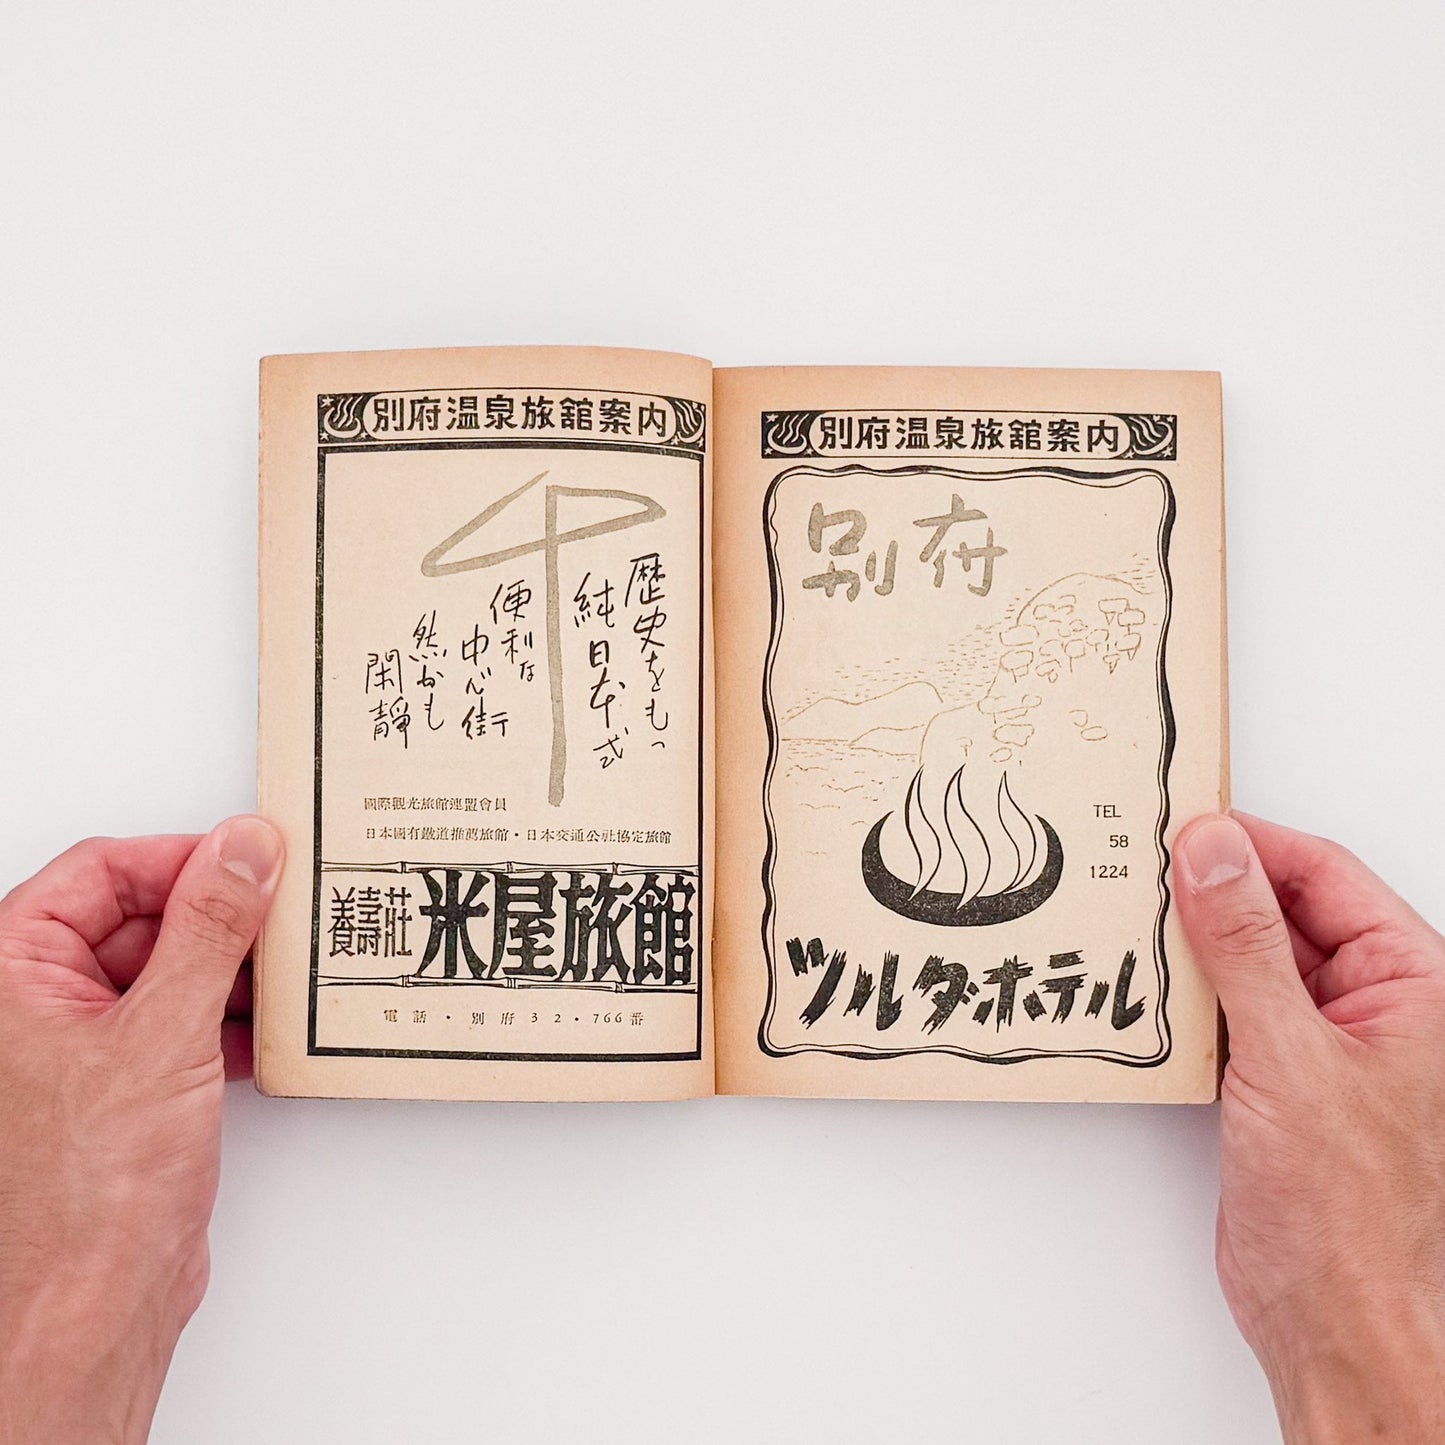 別府温泉旅館案内
中
歴史をもつ
純日本式
便利な
中心街
然かも
閑靜
國際觀光旅館連盟會員
日本國有鐵道推薦旅館・日本交通公社協定旅館
養壽莊 米屋旅館
電話・別府32・766番
別府温泉旅館案内
別府
TEL
58
1224
ツルダホテル